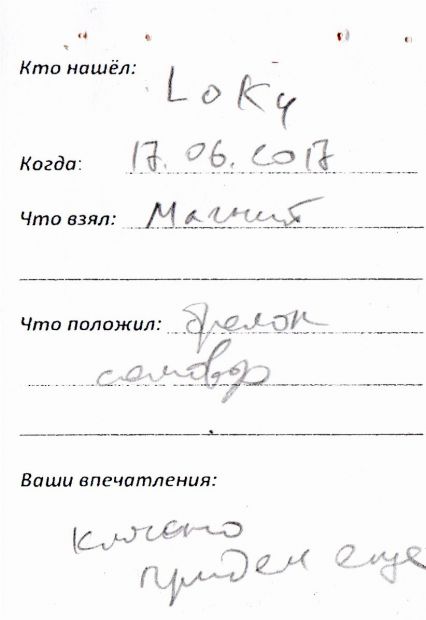 Кто нашёл: Loky
Когда: 17.06.2017
Что взял: Магнит
Что положил: брелок
самовар
Ваши впечатления:
Классно
придем еще